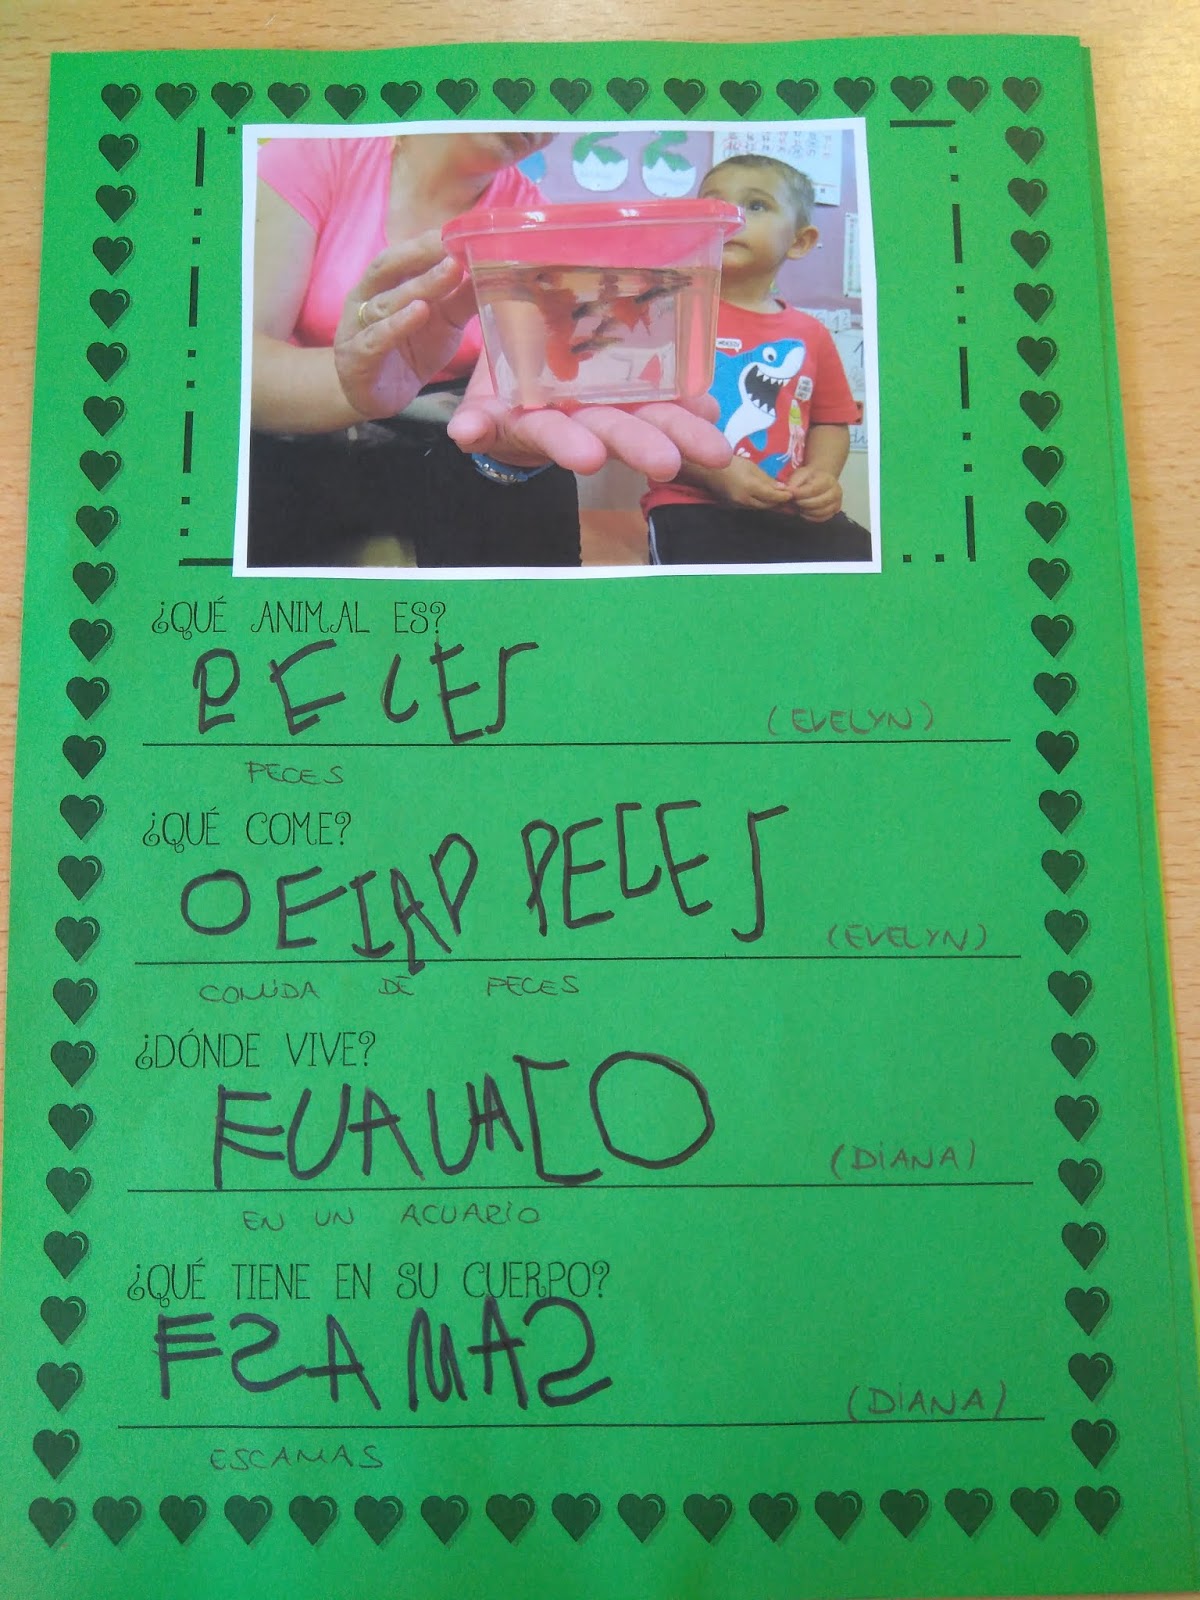 ¿QUÉ ANIMAL ES?
PECES
(EVELYN)
PECES
¿QUÉ COME?
OEIAD PECES
(EVELYN)
COMIDA DE PECES
¿DÓNDE VIVE?
EUAUACO
(DIANA)
EN UN ACUARIO
¿QUÉ TIENE EN SU CUERPO?
ESAMAS
(DIANA)
ESCAMAS